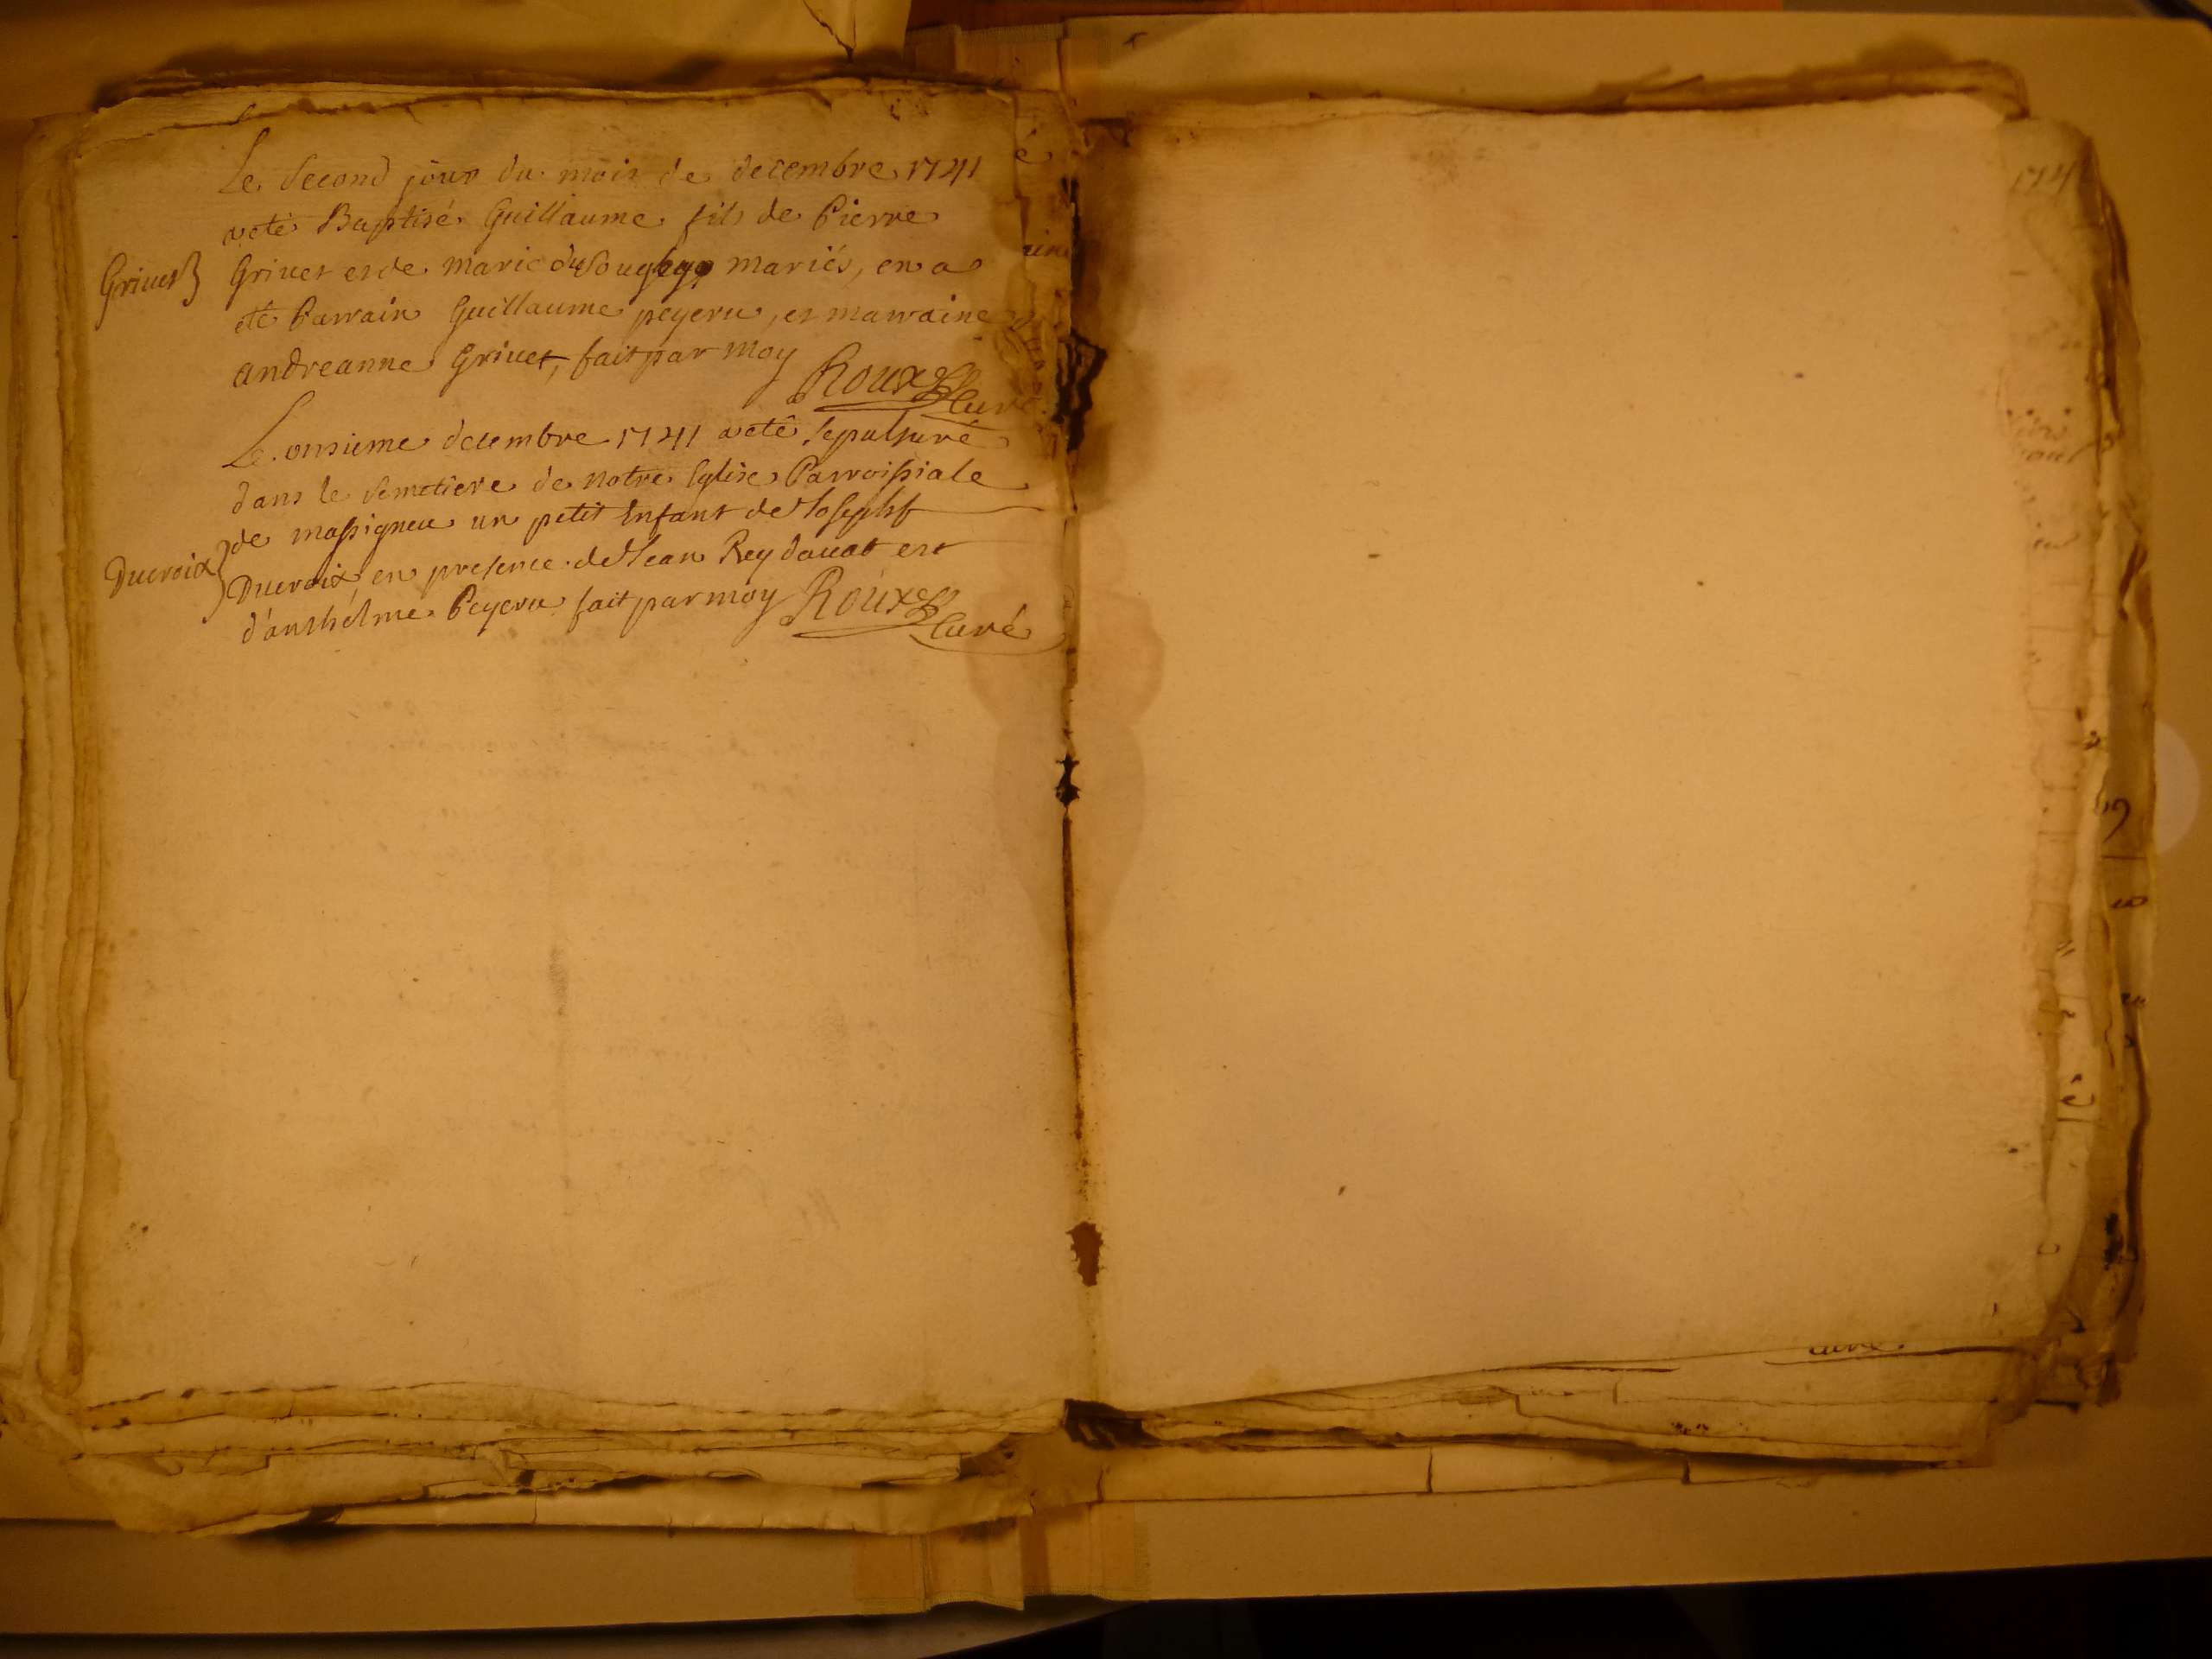 Le second jour du mois de decembre 1741
a eté Baptisé Guillaume fils de Pierre
Grivet
Grivet et de marie mariés, en a
eté Parrain Guillaume peyeru, et marraine
andreanne Grivet, fait par moy
Roux Curé
Le onsieme decembre 1741 a eté sepulturé
dans le semetiere de notre Eglise Parroissiale
de massigneu un petit Enfant de Joseph
Ducroix
Ducroix, en presence de Jean Rey davat et
d'anthelme Peyeru fait par moy Roux
Curé